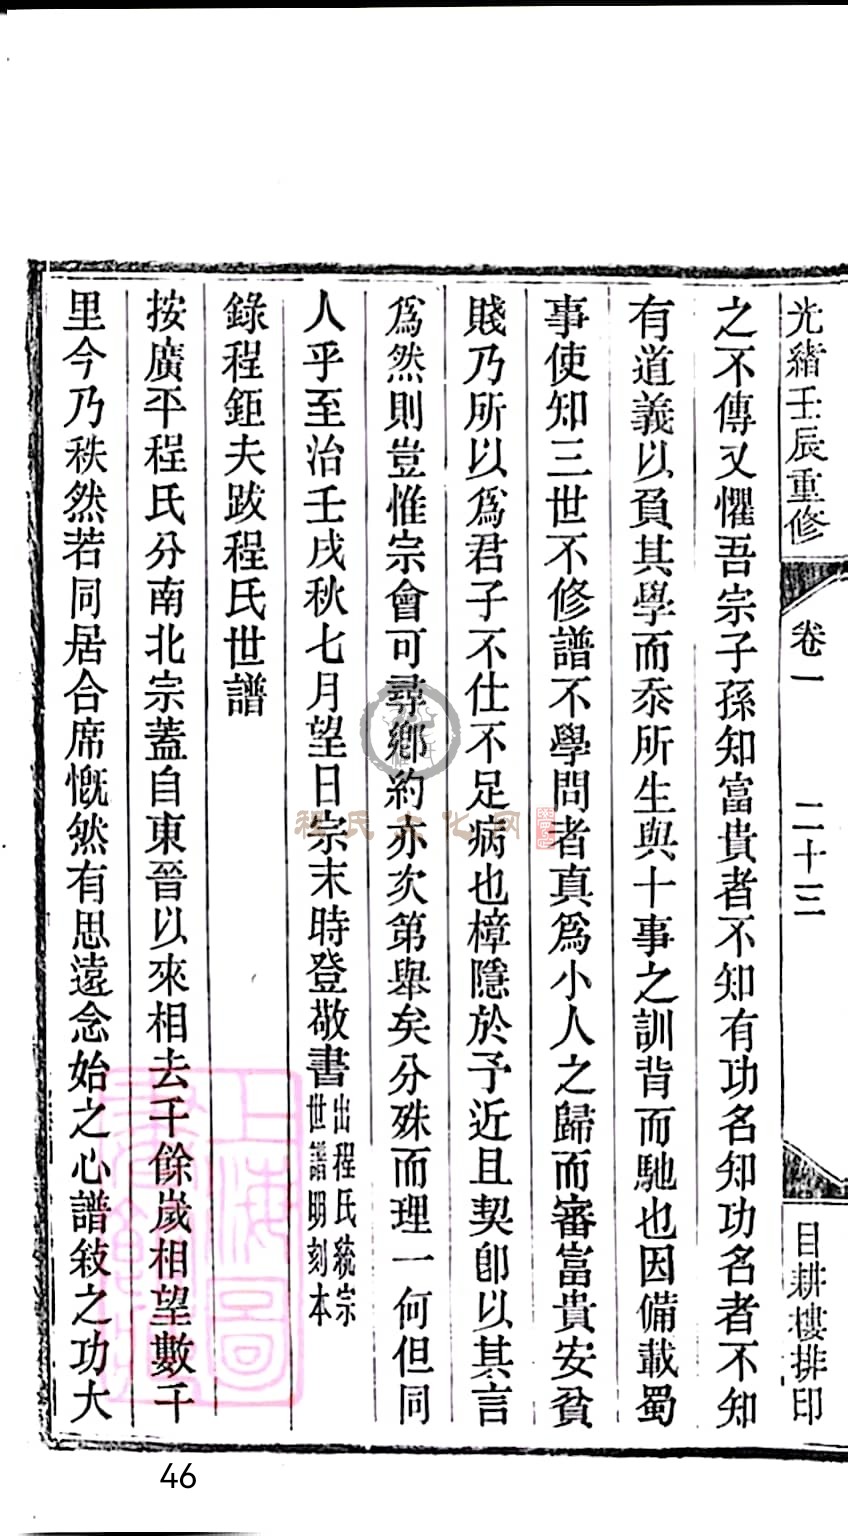 光緒壬辰重修
卷一
二十三
目耕樓排印
之不傳又懼吾宗子孫知富貴者不知有功名知功名者不知
有道義以負其學而忝所生與十事之訓背而馳也因備載蜀
事使知三世不修譜不學問者真爲小人之歸而審富貴安貧
賤乃所以爲君子不仕不足病也樟隱於予近且契卽以其言
爲然則豈惟宗會可尋鄉約亦次第舉矣分殊而理一何但同
人乎至治壬戌秋七月望日宗末時登敬書
出程氏統宗
世譜明刻本
錄程鉅夫跋程氏世譜
按廣平程氏分南北宗蓋自東晉以來相去千餘歲相望數千
里今乃秩然若同居合席慨然有思遠念始之心譜敍之功大
程氏文化网
上海圖
書館藏
46